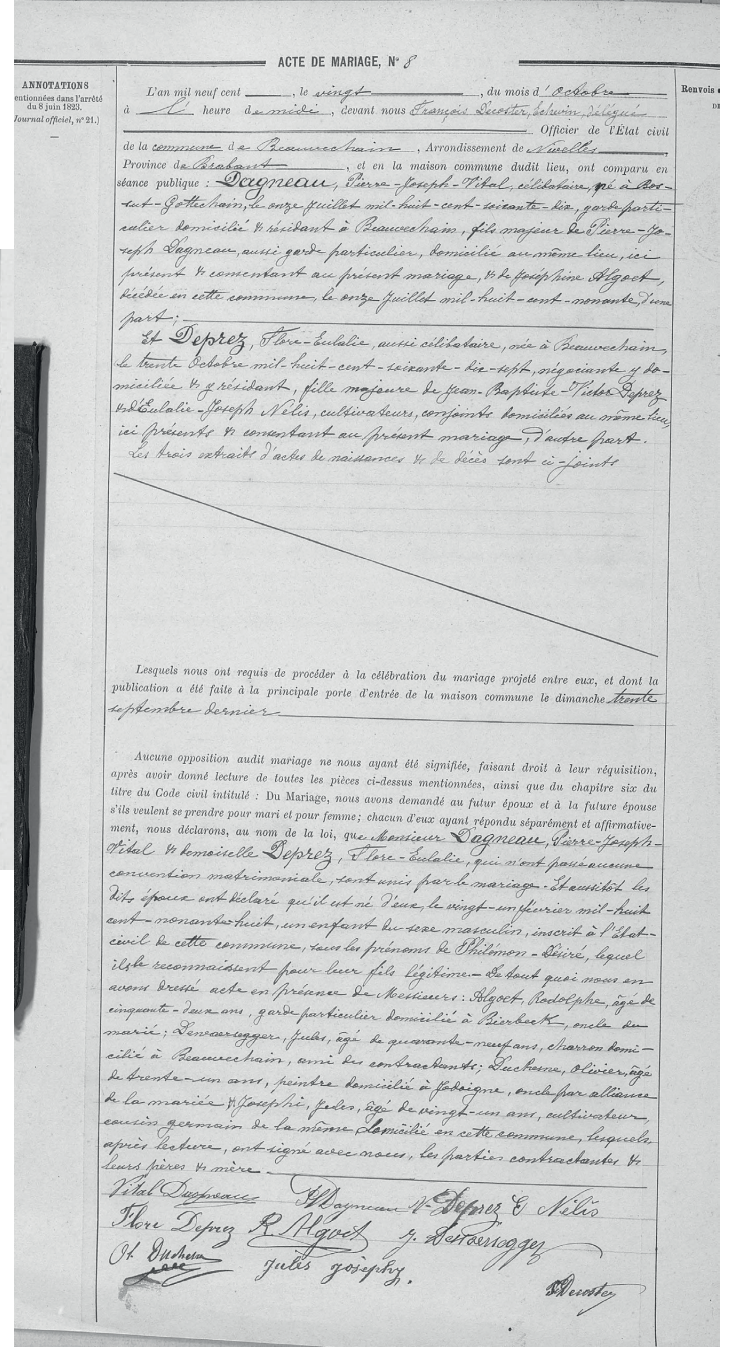 ACTE DE MARIAGE, N° 8
ANNOTATIONS
entionnées dans l'arrêté
du 8 juin 1823.
Journal officiel, n° 21.)
Renvois
L'an mil neuf cent , le vingt , du mois d'Octobre
à l' heure de midi , devant nous François Decoster, Echevin, délégué
Officier de l'État civil
de la commune de Beauvechain , Arrondissement de Nivelles
Province de Brabant , et en la maison commune dudit lieu, ont comparu en
séance publique : Dagneau, Pierre-Joseph-Vital, célibataire, né à Bos-
sut-Gottechain, le onze Juillet mil-huit-cent-soixante-dix, garde parti-
culier domicilié & résidant à Beauvechain, fils majeur de Pierre-Jo-
seph Dagneau, aussi garde particulier, domicilié au même lieu, ici
présent & consentant au présent mariage, & de Joséphine Algoet,
décédée en cette commune, le onze Juillet mil-huit-cent-nonante, d'une
part;
Et Deprez, Flore-Eulalie, aussi célibataire, née à Beauvechain,
le trente Octobre mil-huit-cent-soixante-dix-sept, négociante y do-
miciliée & y résidant, fille majeure de Jean-Baptiste-Victor Deprez
& d'Eulalie-Joseph Nelis, cultivateurs, conjoints domiciliés au même lieu,
ici présents & consentant au présent mariage, d'autre part.
Les trois extraits d'actes de naissances & de décès sont ci-joints
Lesquels nous ont requis de procéder à la célébration du mariage projeté entre eux, et dont la
publication a été faite à la principale porte d'entrée de la maison commune le dimanche trente
septembre dernier
Aucune opposition audit mariage ne nous ayant été signifiée, faisant droit à leur réquisition,
après avoir donné lecture de toutes les pièces ci-dessus mentionnées, ainsi que du chapitre six du
titre du Code civil intitulé : Du Mariage, nous avons demandé au futur époux et à la future épouse
s'ils veulent se prendre pour mari et pour femme; chacun d'eux ayant répondu séparément et affirmative-
ment, nous déclarons, au nom de la loi, que Monsieur Dagneau, Pierre-Joseph-
Vital & demoiselle Deprez, Flore-Eulalie, qui n'ont passé aucune
convention matrimoniale, sont unis par le mariage. Et aussitôt les
dits époux ont déclaré qu'il est né d'eux, le vingt-un février mil-huit
cent-nonante-huit, un enfant du sexe masculin, inscrit à l'Etat-
civil de cette commune, sous les prénoms de Philémon-Désiré, lequel
ils le reconnaissent pour leur fils légitime. De tout quoi nous en
avons dressé acte en présence de Messieurs: Algoet, Rodolphe, âgé de
cinquante-deux ans, garde particulier domicilié à Bierbeek, oncle du
marié; Jules, âgé de quarante-neuf ans, charron domi-
cilié à Beauvechain, ami des contractants; Duchesne, Olivier, âgé
de trente-un ans, peintre domicilié à Jodoigne, oncle par alliance
de la mariée & Josephi, Jules, âgé de vingt-un ans, cultivateur,
cousin germain de la même domicilié en cette commune, lesquels,
après lecture, ont signé avec nous, les parties contractantes &
leurs pères & mère
Vital Dagneau Dagneau Deprez E Nélis
Flore Deprez R. Algoet
Ol. Duchesne Jules Josephy.
Decoster